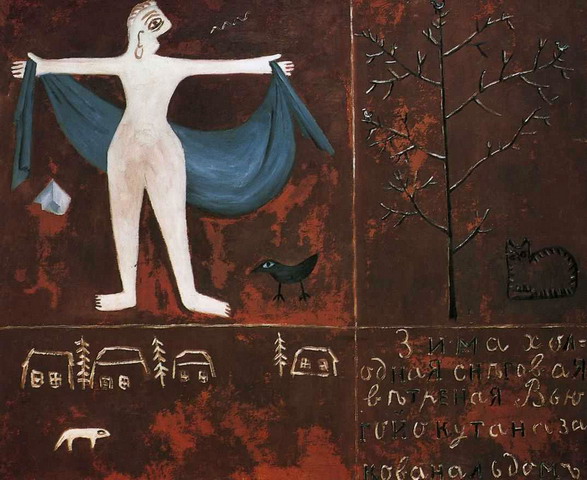 Зима хол-
одная снѣговая
вѣтреная Вью
гой окутана за
кована льдомъ